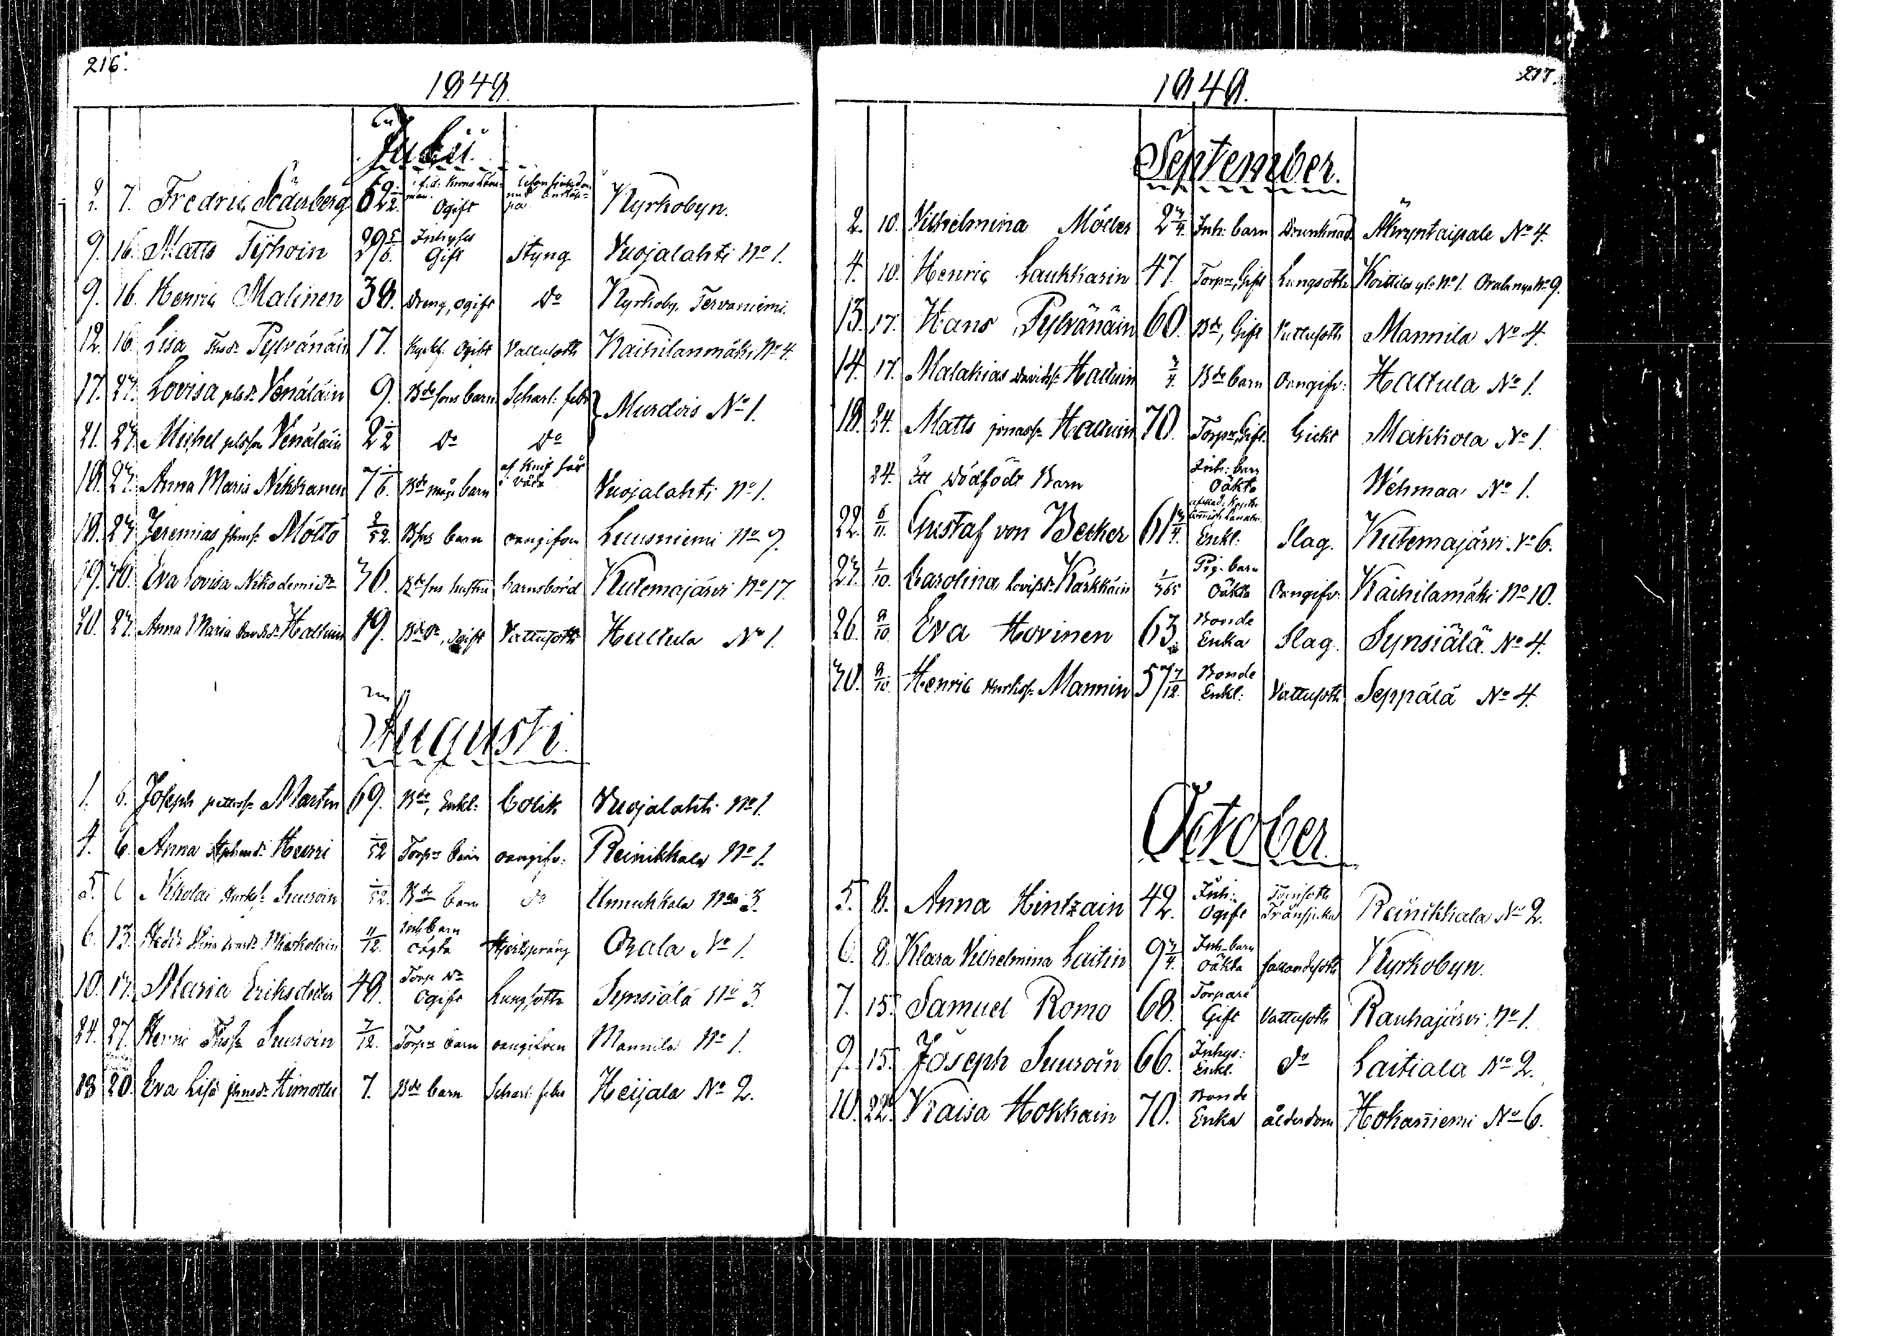 216.
1849.
Julii
2. 7. Fredric Söderberg 62 1/2. f.d. Ogift Kyrkobyn.
9. 16. Matts Tyhoin 29 5/6. Inhyses Gift Styng Vuojalahti No 1.
9. 16. Henric Malinen 38. Dreng, ogift Do Kyrkoby, Tervaniemi.
12. 16. Lisa Pylvänäin 17. Ogift Vattusoth Kaihilanmäki No 4.
17. 27. Lovisa Venäläin 9. Bde sons barn Scharl: febr Murdois No 1.
21. 27. Michel Venäläin 2 1/2 Do Do
18. 27. Anna Maria Nikkanen 7 1/6. Bde mågs barn af Knif sår våda Vuojalahti No 1.
18. 27. Jeremias Möttö 2/52 barn oangifven Luusniemi No 9.
19. 30. Eva Lovisa Nikodemidr 36. Bde sons hustru barnsbörd Kutemajärvi No 17.
20. 27. Anna Maria Davidsdr Halluin 19. Ogift Vattusoth Hallula No 1.
Augusti.
1. 6. Joseph petterss: Martin 69. Bde, Enkl: Colik Vuojalahti No 1.
4. 6. Anna Hurri 1/52 Torp: barn oangifv: Reinikkala No 1.
5. 6 Nikolai Suuroin 1/52. Bde barn do Ummukkala No 3.
6. 13. Miskolain 11/12. Inh barn oägta Hjertsprång Orala No 1.
10. 17. Maria Eriksdotter 48. Torp: Dr Ogift Lungsoth Synsiälä No 3.
24. 27. Suuroin 7/12. Torp: barn oangifven Mannila No 1.
18 20. Eva Lisa Himottu 7. Bde barn Scharl: febr Heijala No 2.
217.
1849.
September.
2. 10. Vilhelmina Möller 2 3/4. Inh: barn Drunknad. Äkryntaipale No 4.
4. 10. Henric Laukkarin 47. Torp:, Gift Lungsoth No 1. No 9.
13. 17. Hans Pylvänäin 60. Bde, Gift Vattusoth Mannila No 4.
14. 17. Malakias Davidss: Halluin 3/4. Bde barn Oangifv: Hallula No 1.
18. 24. Matts jonass: Halluin 70. Torp:, Gift Gickt Makkola No 1.
24. Ett Dödfödt Barn Inh: barn Oäkta Wehmaa No 1.
22. 6/11. Gustaf von Becker 61 3/4. Enkl: Slag. Kutemajärvi No 6.
27. 1/10. Carolina Lovisdr Kärkkäin 1/365 Pig: barn Oäkta Oangifv: Kaihilamäki No 10.
26. 9/10. Eva Hovinen 63. Bonde Enka Slag. Synsiälä No 4.
30. 9/10. Henric Mannin 57 7/12. Bonde Enkl: Vattusoth Seppälä No 4.
October.
5. 8. Anna Hintzain 42. Inh: Ogift Reinikkala No 2.
6. 8. Klara Vilhelmina Laitin 9 3/4. Inh: barn Oäkta fallandesoth Kyrkobyn.
7. 15. Samuel Romo 68. Torpare Gift Vattusoth Rauhajärvi No 1.
9. 15. Joseph Suuroin 66. Inhys: Enkl. Do Laitiala No 2.
10. 22. Kaisa Hokkain 70. Bonde Enka ålderdom Hokaniemi No 6.